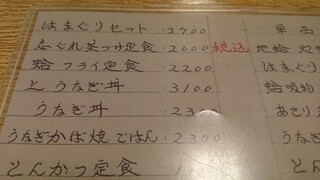 はまぐりセット 2700
しぐれ茶づけ定食 2000 税込
蛤フライ定食 2200
とうなぎ丼 3100
うなぎ丼 23
うなぎかば焼ごはん 2300
とんかつ定食 1
単品
地蛤
はまぐり
蛤吸物
あさり
うなぎ
とん